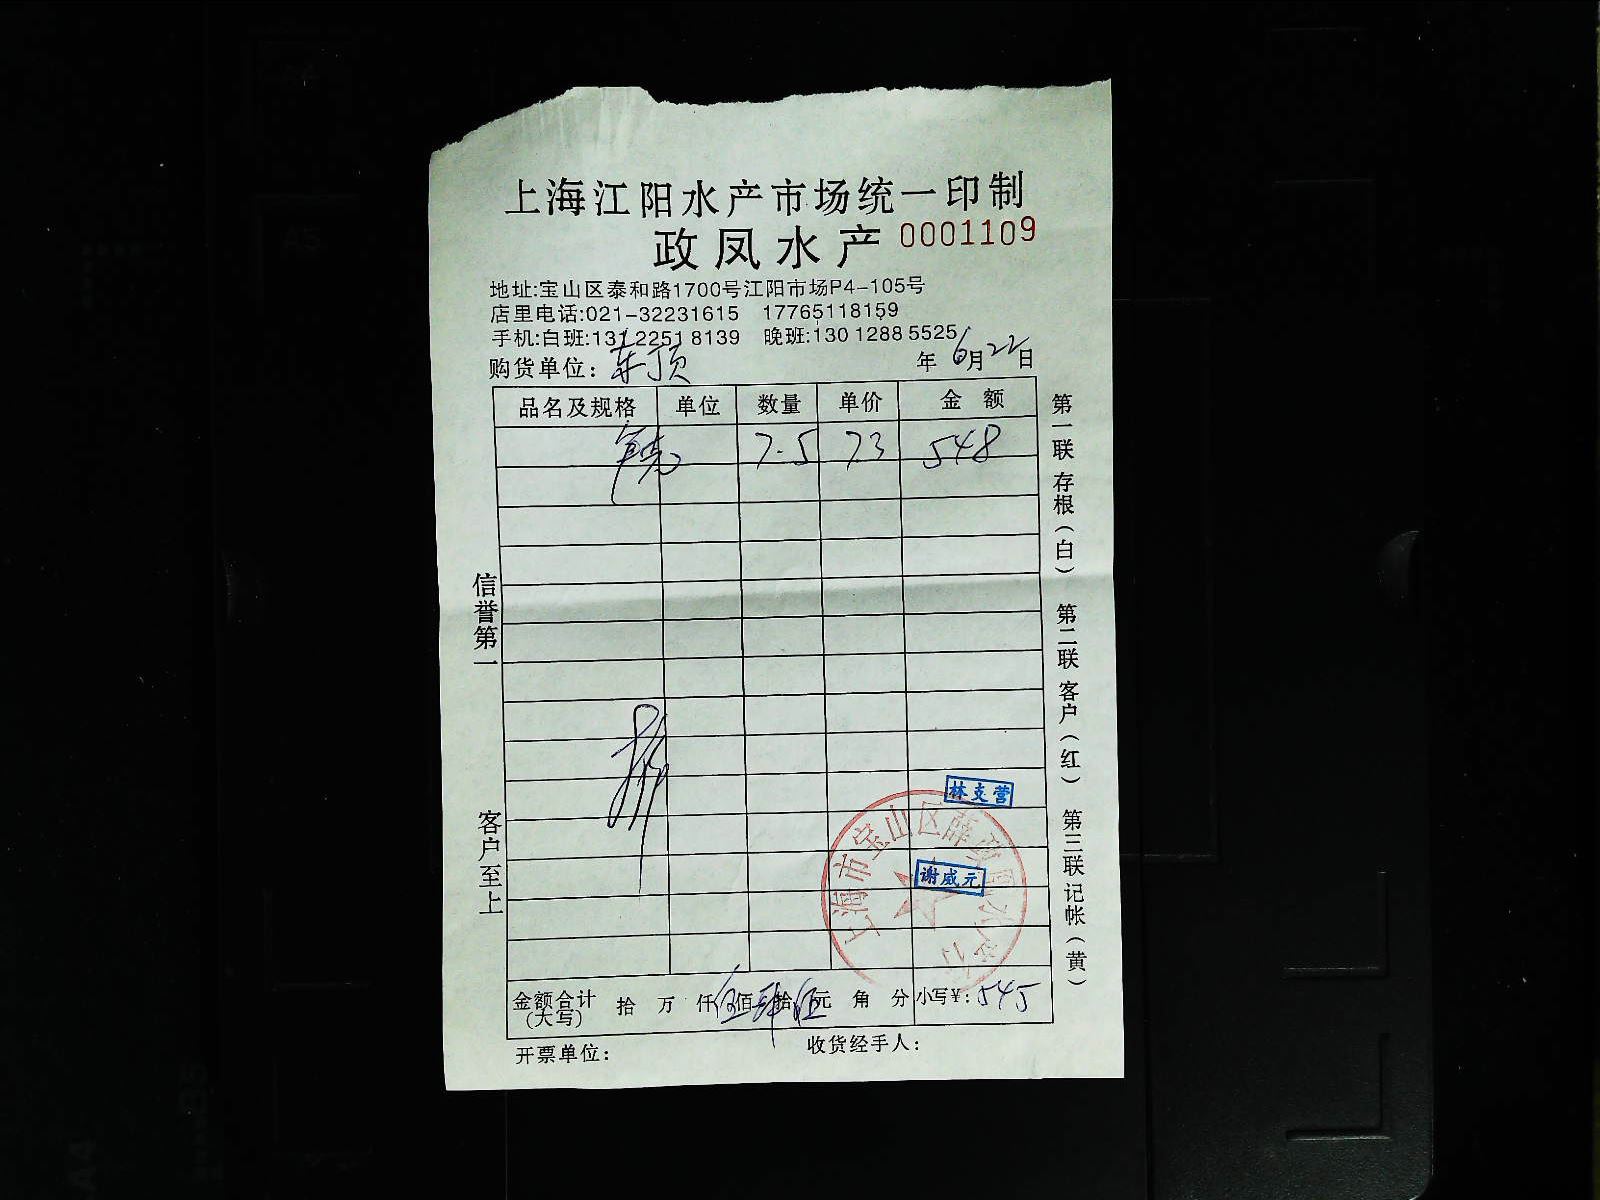 上海江阳水产市场统一印制
政凤水产 0001109
地址:宝山区泰和路1700号江阳市场P4-105号
店里电话:021-32231615 17765118159
手机:白班:131 2251 8139 晚班:130 1288 5525
购货单位: 东顶 年 6月22日
品名及规格 单位 数量 单价 金额
7.5 73 548
信誉第一
客户至上
第一联 存根(白) 第二联 客户(红) 第三联 记帐(黄)
林支营
谢成元
上海市宝山区薛 水产行
金额合计 拾 万 仟 伍佰 肆拾 伍元 角 分 小写¥: 545
(大写)
开票单位: 收货经手人: